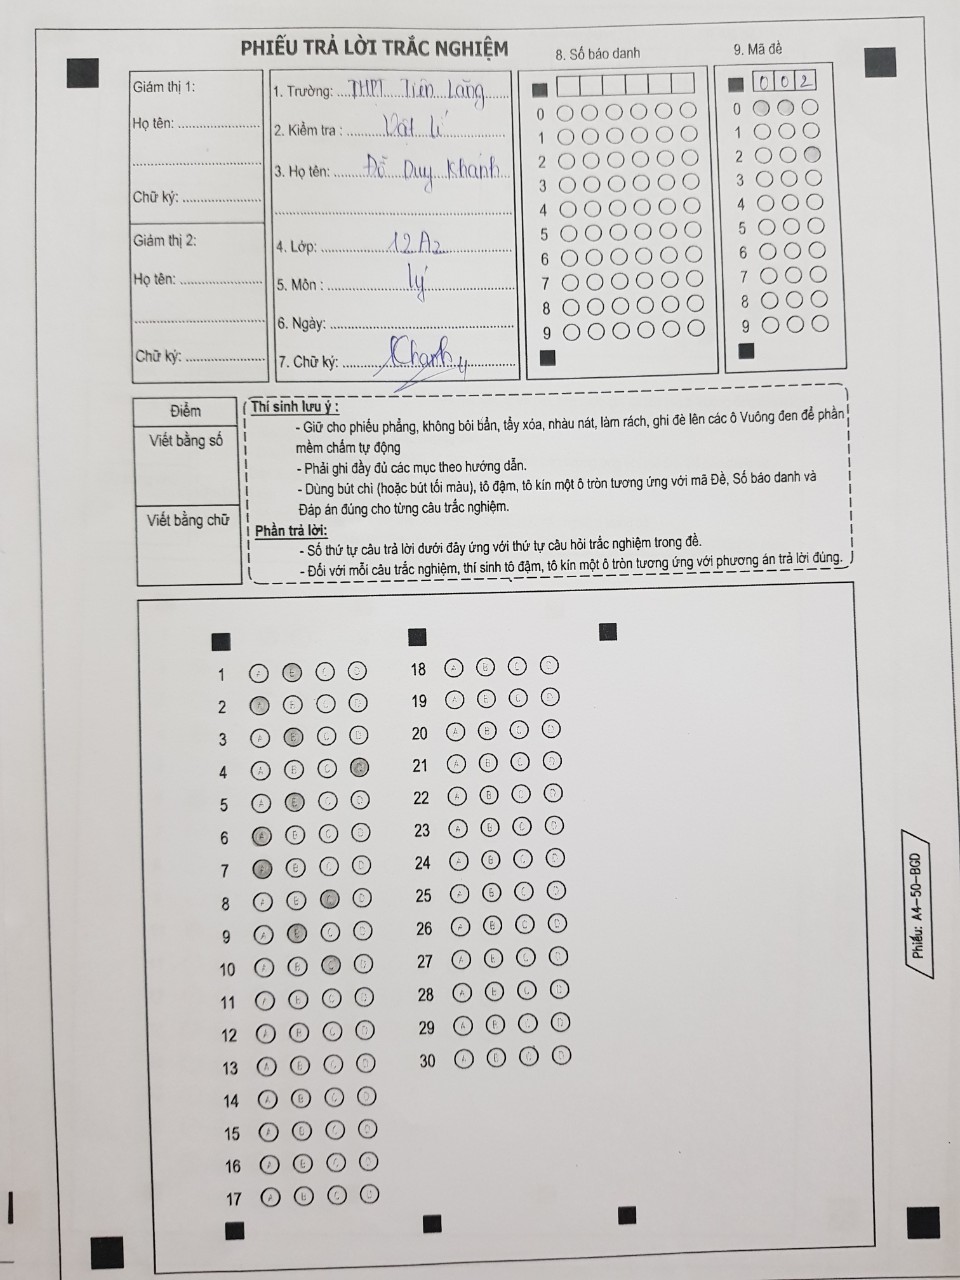 PHIẾU TRẢ LỜI TRẮC NGHIỆM
8. Số báo danh
9. Mã đề
Giám thị 1:
Họ tên:
Chữ ký:
Giám thị 2:
Họ tên:
Chữ ký:
1. Trường: THPT Tiên Lãng
2. Kiểm tra : Vật lí
3. Họ tên: Đỗ Duy Khánh
4. Lớp: 12A2
5. Môn : lý
6. Ngày:
7. Chữ ký: Khanh
0
1
2
3
4
5
6
7
8
9
0 0 2
0
1
2
3
4
5
6
7
8
9
Điểm
Viết bằng số
Viết bằng chữ
Thí sinh lưu ý :
- Giữ cho phiếu phẳng, không bôi bẩn, tẩy xóa, nhàu nát, làm rách, ghi đè lên các ô Vuông đen để phần
mềm chấm tự động
- Phải ghi đầy đủ các mục theo hướng dẫn.
- Dùng bút chì (hoặc bút tối màu), tô đậm, tô kín một ô tròn tương ứng với mã Đề, Số báo danh và
Đáp án đúng cho từng câu trắc nghiệm.
Phần trả lời:
- Số thứ tự câu trả lời dưới đây ứng với thứ tự câu hỏi trắc nghiệm trong đề.
- Đối với mỗi câu trắc nghiệm, thí sinh tô đậm, tô kín một ô tròn tương ứng với phương án trả lời đúng.
1 A B C D
2 A B C D
3 A B C D
4 A B C D
5 A B C D
6 A B C D
7 A B C D
8 A B C D
9 A B C D
10 A B C D
11 A B C D
12 A B C D
13 A B C D
14 A B C D
15 A B C D
16 A B C D
17 A B C D
18 A B C D
19 A B C D
20 A B C D
21 A B C D
22 A B C D
23 A B C D
24 A B C D
25 A B C D
26 A B C D
27 A B C D
28 A B C D
29 A B C D
30 A B C D
Phiếu: A4-50-BGD